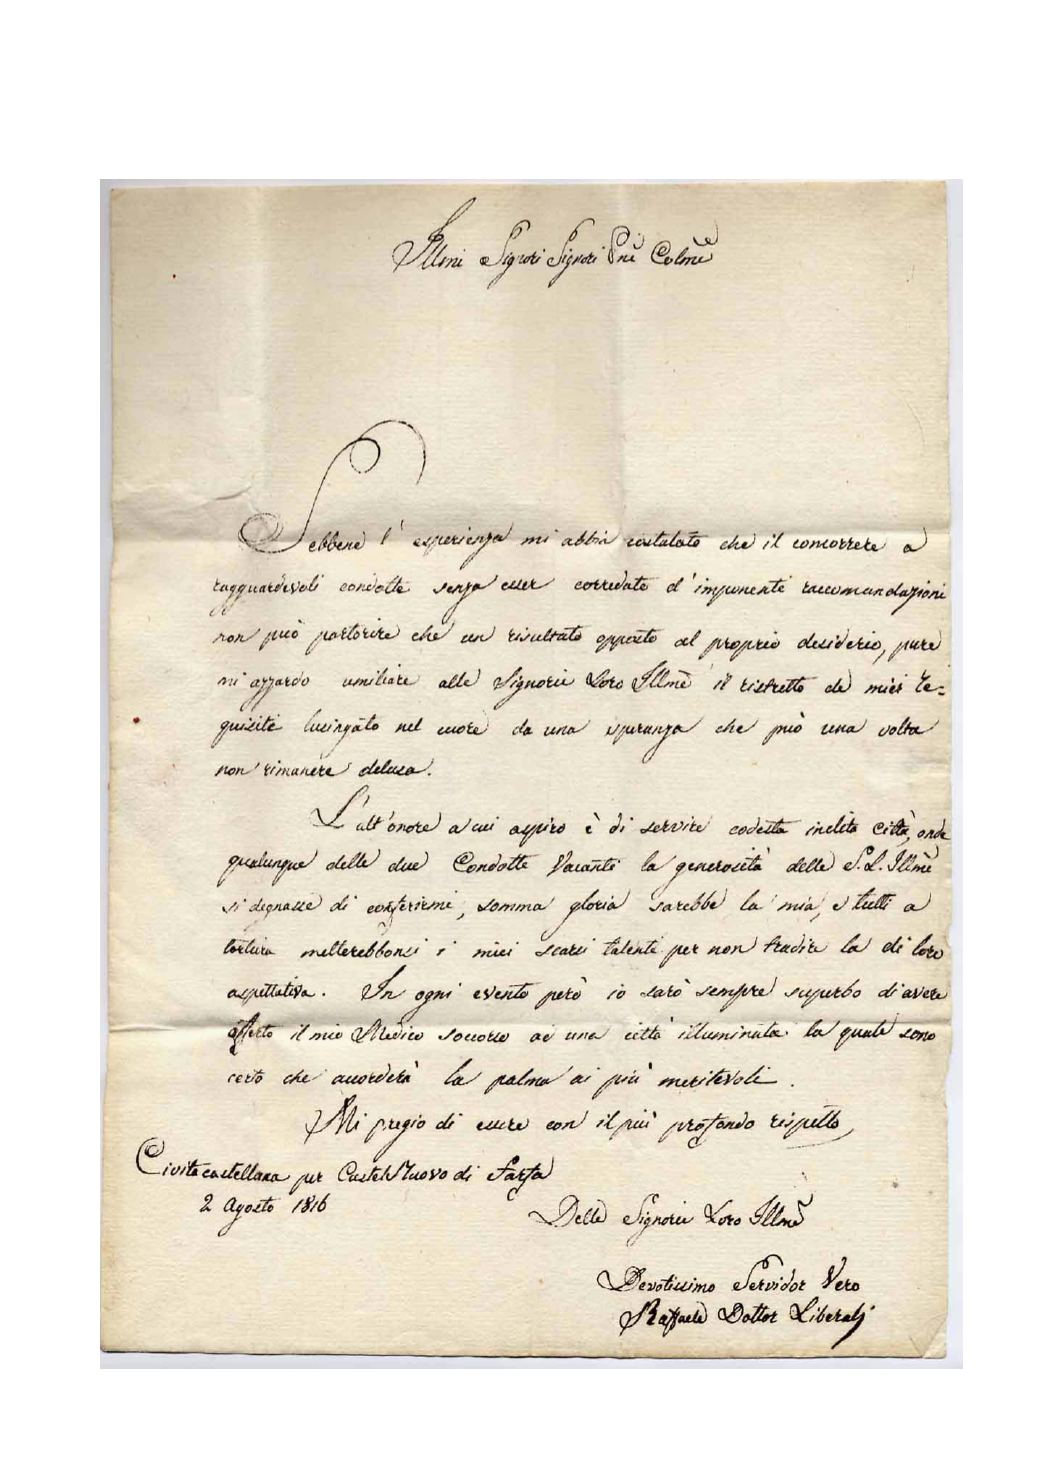 Illmi Signori Signori Pnĩ Colmĩ
Sebbene l'esperienza mi abbia costatato che il concorrere a
ragguardevoli condotte senza esser corredato d'imponenti raccomandazioni
non può partorire che un risultato opposto al proprio desiderio, pure
mi azzardo umiliare alle Signorie Loro Illmẽ il ristretto de miei re=
quisiti lusingato nel cuore da una speranza che può una volta
non rimanere delusa.
L'alt'onore a cui aspiro è di servire codesta inclita città, onde
qualunque delle due Condotte Vacanti la generosità delle S.L. Illmẽ
si degnasse di conferirmi, somma gloria sarebbe la mia, e tutti a
tortura metterebbonsi i miei scarsi talenti per non tradire la di loro
aspettativa. In ogni evento però io sarò sempre superbo di avere
offerto il mio Medico soccorso ad una città illuminata la quale sono
certo che accorderà la palma ai più meritevoli.
Mi pregio di essere con il più profondo rispetto
Civitacastellana per Castel Nuovo di Farfa
2 Agosto 1816
Delle Signorie Loro Illmẽ
Devotissimo Servidor Vero
Raffaele Dottor Liberali